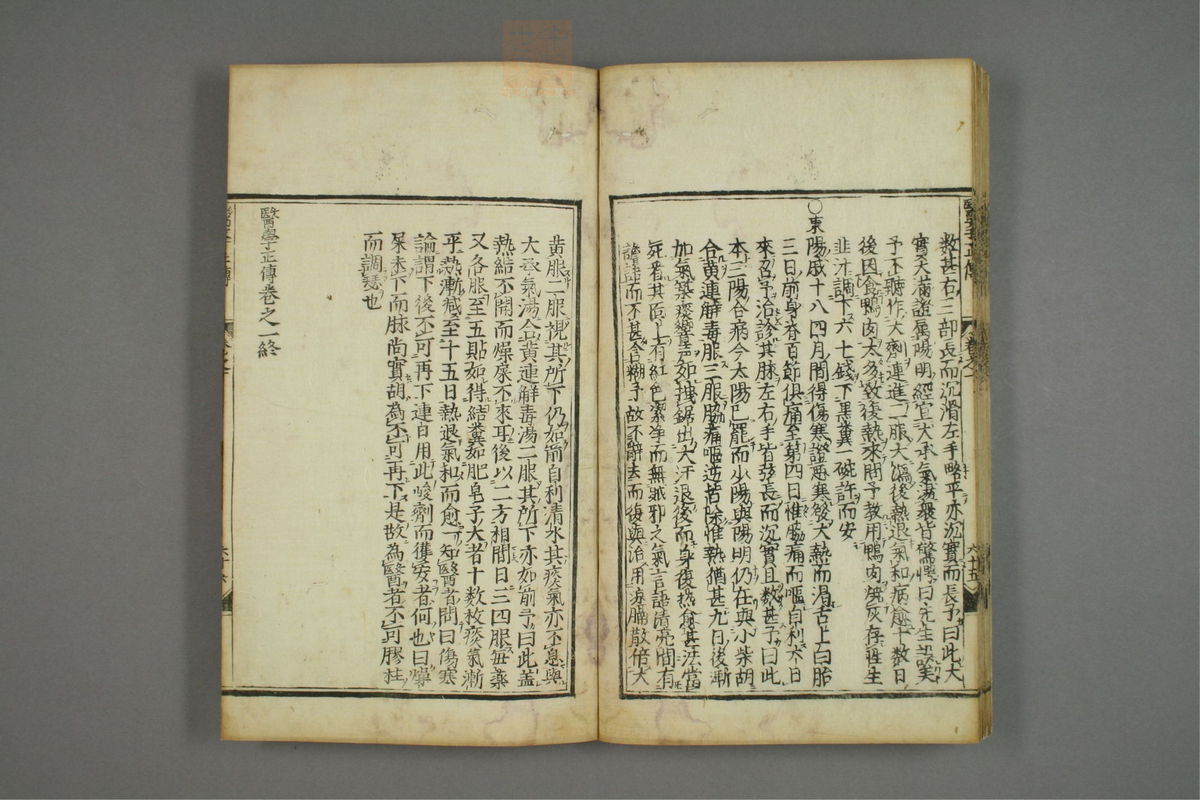 數甚右三部長而沉滑左手略平亦沉實而長予曰此大
實大滿證屬陽明經宜大承氣湯衆皆驚愕曰先生誤矣
予不聽作大劑連進二服大瀉後熱退氣和病愈十數日
後因食鴨肉太多致復熱來問予教用鴨肉燒灰存性生
韭汁調下六七錢下黑糞一碗許而安
○東陽戚十八四月間得傷寒證惡寒發大熱而渴舌上白胎
三日前身脊百節俱痛至第四日惟脇痛而嘔自利六日
來召予治診其脉左右手皆弦長而沉實且數甚予曰此
本三陽合病今太陽已罷而少陽與陽明仍在與小柴胡
合黄連解毒服三服脇痛嘔逆皆除惟熱猶甚九日後漸
加氣築痰響聲如拽鋸出大汗退後而身復熱愈甚法當
死看其面上有紅色潔净而無賊邪之氣言語清亮間有
譫語而不甚含糊予故不辭去而復與治用凉膈散倍大
黄服二服視其所下仍如前自利清水其痰氣亦不息與
大承氣湯合黄連解毒湯二服其所下亦如前予曰此盖
熱結不開而燥屎不來耳後以二方相間日三四服每藥
又各服至五貼始得結糞如肥皂子大者十數枚痰氣漸
平熱漸減至十五日熱退氣和而愈一知醫者問曰傷寒
論謂下後不可再下連日用此峻劑而獲安者何也曰燥
屎未下而脉尚實胡為不可再下是故為醫者不可膠柱
而調瑟也
醫學正傳卷之一終
醫學正傳
六十五